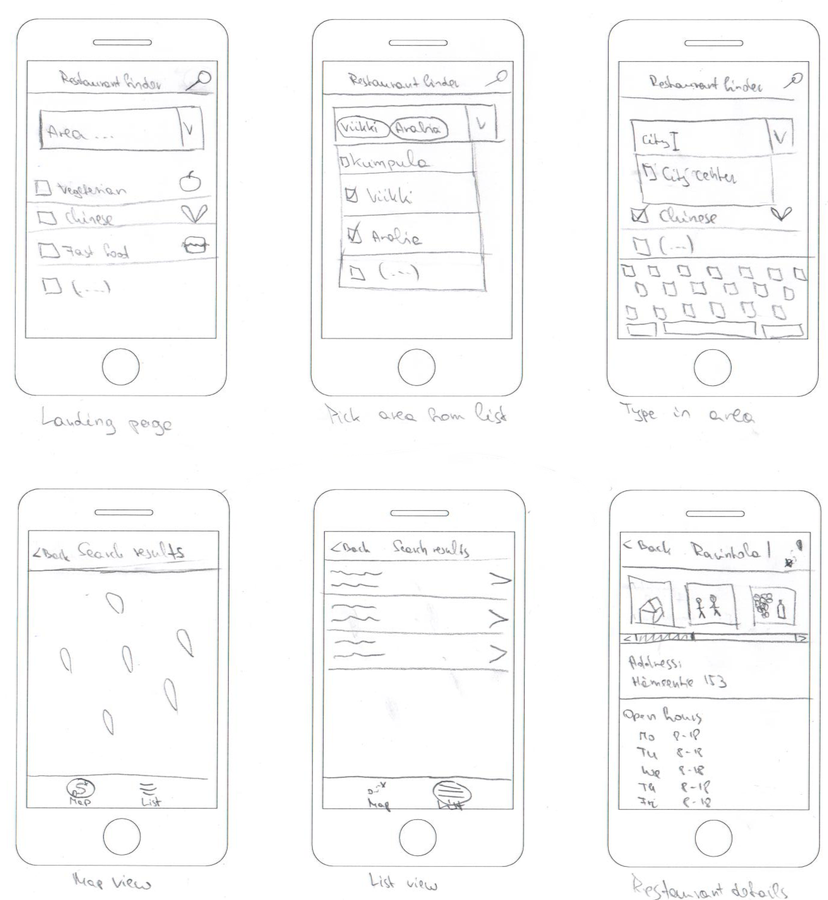 Restaurant finder
Area ...
Vegetarian
Chinese
Fast food
(...)
Landing page
Restaurant finder
Viikki Arabia V
Kumpula
Viikki
Arabia
(...)
Pick area from list
Restaurant finder
City
City center
Chinese
(...)
Type in area
< Back Search results
Map List
Map view
< Back Search results
Map List
List view
< Back Ravintola 1
Address:
Hämeentie 153
Open hours
Mo 8-18
Tu 8-18
We 8-18
Th 8-18
Fri 8-18
Restaurant details